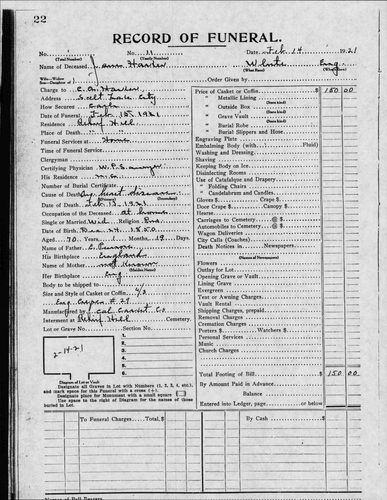 22
RECORD OF FUNERAL.
No. 11 Date, Feb 14 1921
(Total Number) (Yearly Number)
Name of Deceased White Eng
(What Race) (Where Born)
Wife—Widow
Son—Daughter of Order Given by
Charge to
Address Salt Lake City
How Secured
Date of Funeral Feb 15, 1921
Residence
Place of Death " "
Funeral Services at Home
Time of Funeral Service
Clergyman
Certifying Physician
His Residence
Number of Burial Certificate
Cause of Death
Date of Death Feb 13, 1921
Occupation of the Deceased at home
Single or Married Wid Religion
Date of Birth Dec 24, 1850
Aged 70 Years Months, 19 Days
Name of Father
His Birthplace England
Name of Mother
(Maiden Name)
Her Birthplace Eng
Body to be shipped to
Size and Style of Casket or Coffin
Manufactured by Cal Casket Co
Interment at Cemetery.
Lot or Grave No. Section No.
1
2
3
4
5
6
7
8
2-14-21
Diagram of Lot or Vault
Designate all Graves in Lot with Numbers (1, 2, 3, 4, etc.),
and mark space for this Funeral with a cross (+).
Designate place for Monument with a small square
Use space to the right of Diagram for the names of those
buried in Lot.
Price of Casket or Coffin $ 150 00
" Metallic Lining
(State kind)
" Outside Box
(State kind)
" Grave Vault
(State kind)
" Burial Robe
(State kind)
" Burial Slippers and Hose
Engraving Plate
Embalming Body (with Fluid)
Washing and Dressing
Shaving
Keeping Body on Ice
Disinfecting Rooms
Use of Catafalque and Drapery
" Folding Chairs
" Candelabrum and Candles
Gloves $ Crape $
Door Crape $ Canopy $
Hearse
Carriages to Cemetery @ $
Automobiles to Cemetery @ $
Wagon Deliveries
City Calls (Coaches)
Death Notices in Newspapers
(Names of Newspapers)
Flowers
Outlay for Lot
Opening Grave or Vault
Lining Grave
Evergreen
Tent or Awning Charges
Vault Rental
Shipping Charges, prepaid
Removal Charges
Cremation Charges
Porters $ Watchers $
Personal Services
Music
Church Charges
Total Footing of Bill $ 150 00
By Amount Paid in Advance
Balance
Entered into Ledger, page or below.
To Funeral Charges Total, $ By Cash $